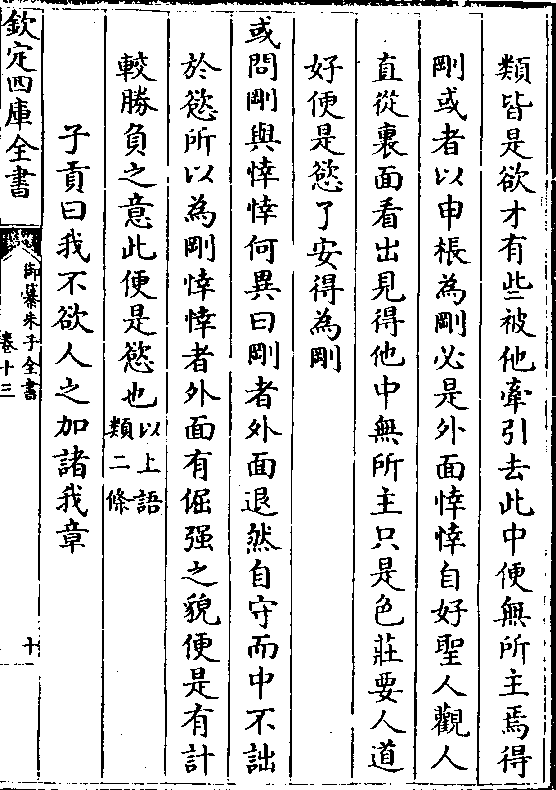 類皆是欲才有些被他牽引去此中便無所主焉得
剛或者以申棖為剛必是外面悻悻自好聖人觀人
直從裏面看出見得他中無所主只是色莊要人道
好便是慾了安得為剛
或問剛與悻悻何異曰剛者外面退然自守而中不詘
於慾所以為剛悻悻者外面有倔强之貌便是有計
較勝負之意此便是慾也以上語類二條
子貢曰我不欲人之加諸我章
欽定四庫全書
御纂朱子全書
卷十三
十